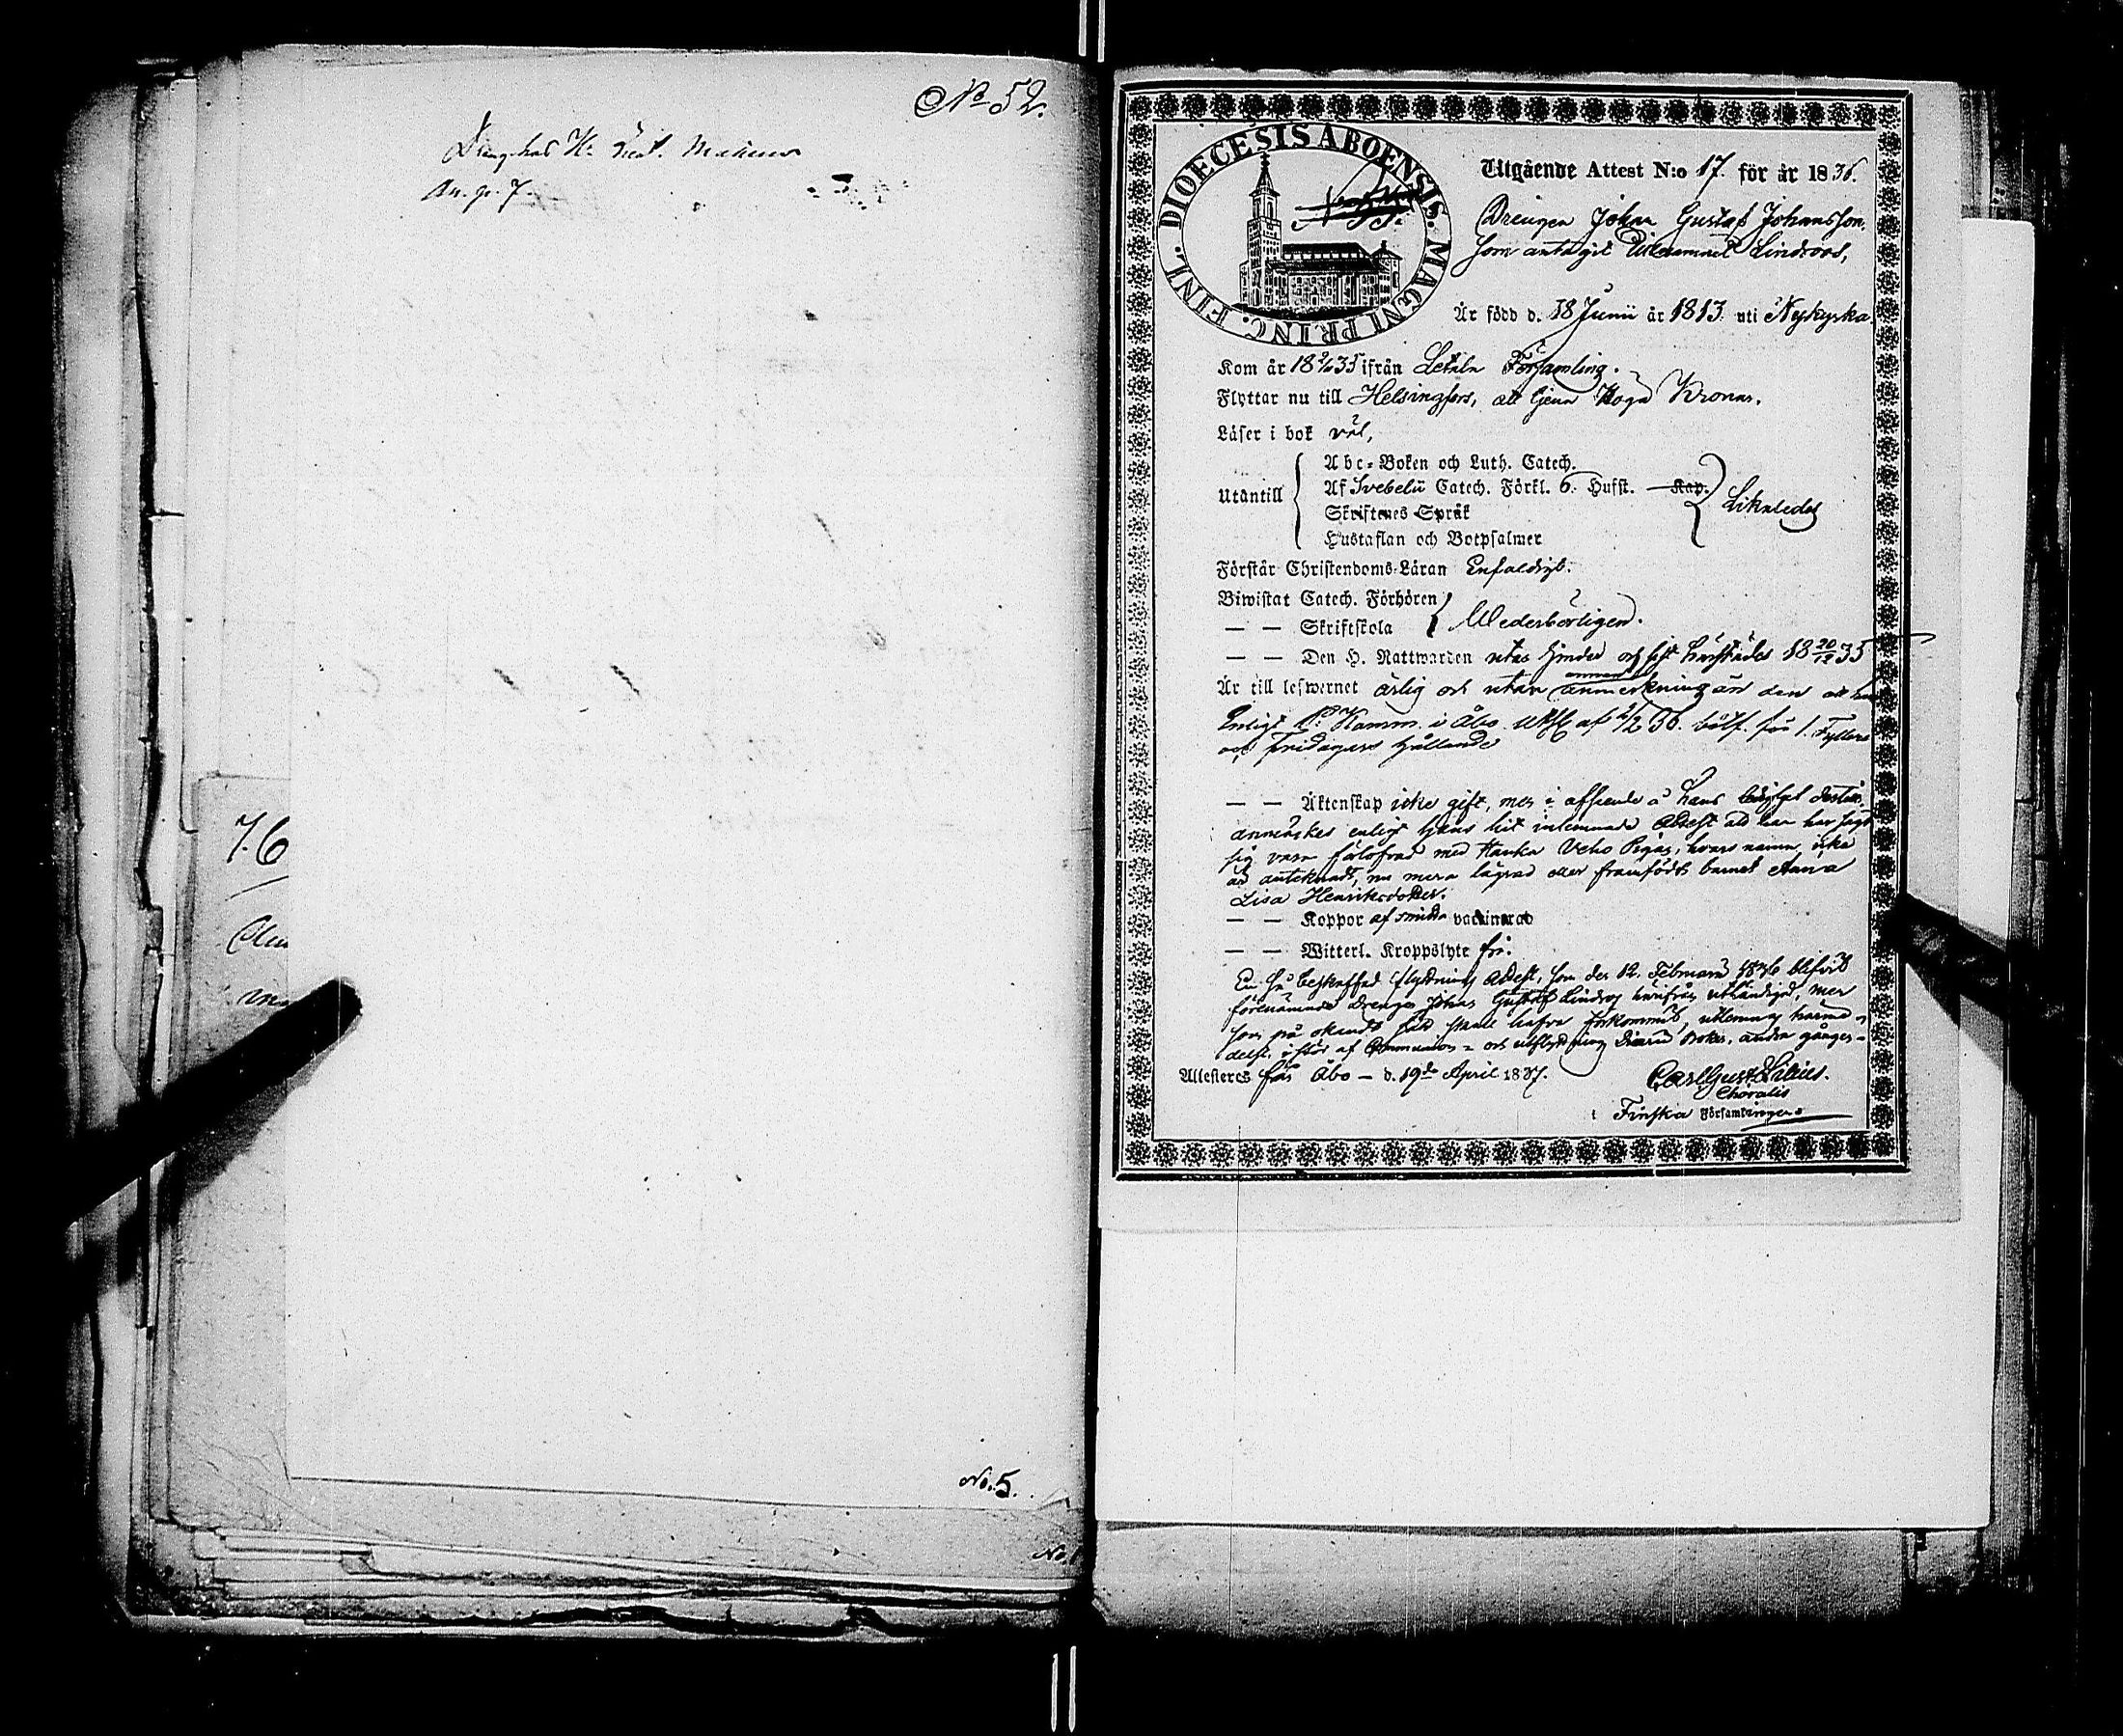 No 52.
An. p. 7.
7.6
No. 5.
No. 1
DIOECESIS ABOENSIS. MAGNI PRINC. FINL.
Utgående Attest N:o 17. för år 1836.
Drengen Johan Gustaf Johansson.
som antagit tillnamnet Lindroos,
Är född d. 18 Junii år 1813. uti Nykyrka.
Kom år 18 35 ifrån Letala Församling.
Flyttar nu till Helsingfors, att tjena Höga Kronan.
Läser i bok väl,
Utantill
Abc-Boken och Luth. Catech.
Af Svebelii Catech. Förkl. 6. Hufst. Kap.
Skriftenes Språk
Hustaflan och Botpsalmer
Likaledes
Förstår Christendoms-Läran Enfaldigt.
Biwistat Catech. Förhören
— — Skriftskola
Wederbörligen.
— — Den H. Nattwarden utan hinder och sist härstädes 18 20/12 35
Är till lefwernet ärlig och utan annan anmerkning än den att han
Enligt P. Kamm. i Åbo Utsl af 2/2 36. bötf. för 1. Fylleri
och fridagars hållande
— — Äktenskap icke gift, men i afseende å hans
anmärkes enligt hans hit inlemnade Attest att han har sagt
sig vara förlofvad med Hauka Veho Pigan, hvars namn icke
är antecknadt, nu mera lägrad eller framfödt barnet Anna
Lisa Henriksdotter.
— — Koppor af smitta vaccinerad
— — Witterl. Kroppslyte fri.
En så beskaffad flyttnings Attest, som den 12. Februarii 1836 blifvit
förenämnde Drengen Johan Gustaf Lindros härifrån uthändigad, men
som på okändt sätt skall hafva förkommit, utlemnas härme-
delst, i stöd af Communion- och utflyttnings Diarii Boken, andra gången-
Attesteras från Åbo — d. 19de April 1837.
Carl Gust. Lilius.
Choralis
i Finska Församlingen